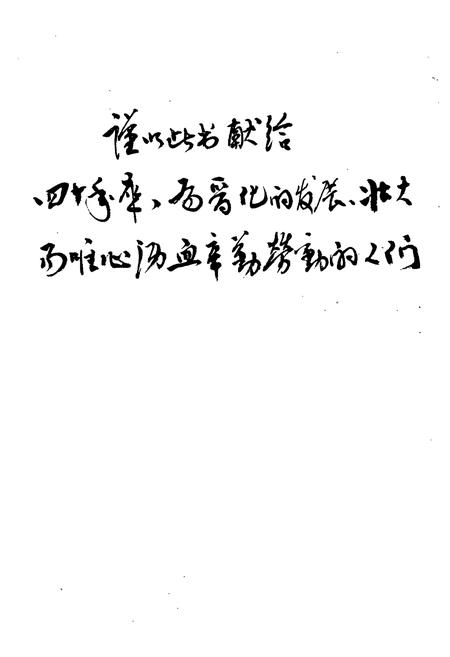 谨以此书献给
四十年来、为晋化的发展、壮大
而呕心沥血辛勤劳動的人们